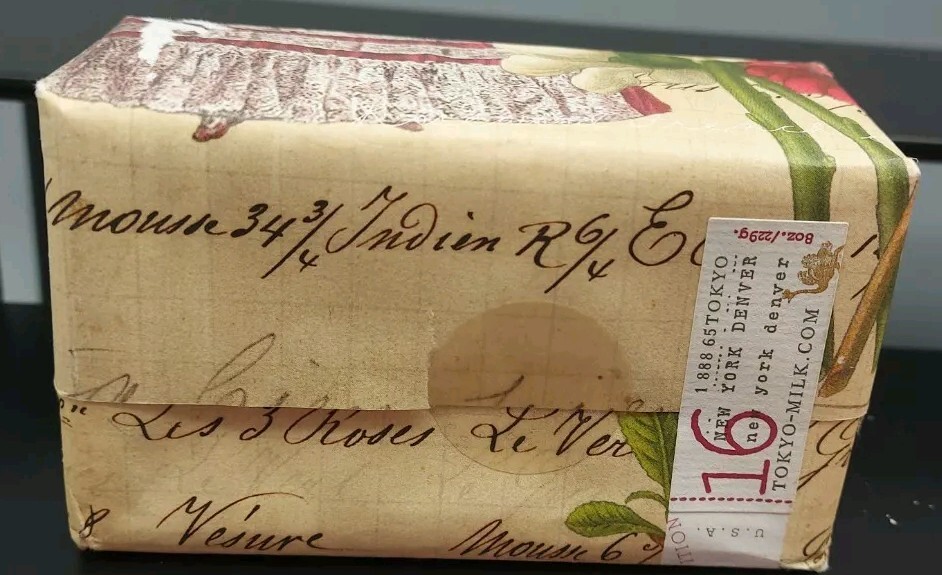 mousse 34 3/4 Indien R 6/4 E
Les 3 Roses Le Ver
8 Vésure Mousse 6
8oz./229g.
1 888 65TOKYO
NEW YORK DENVER
new york denver
TOKYO-MILK.COM
16
U.S.A.
ITION